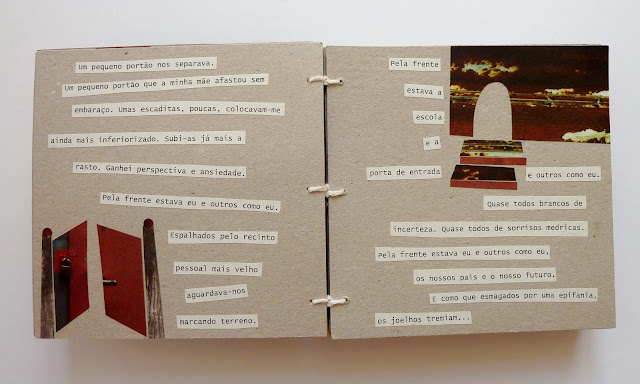 Um pequeno portão nos separava.
Um pequeno portão que a minha mãe afastou sem
embaraço. Umas escaditas, poucas, colocavam-me
ainda mais inferiorizado. Subi-as já mais a
rasto. Ganhei perspectiva e ansiedade.
Pela frente estava eu e outros como eu.
Espalhados pelo recinto
pessoal mais velho
aguardava-nos
marcando terreno.
Pela frente
estava a
escola
e a
porta de entrada e outros como eu.
Quase todos brancos de
incerteza. Quase todos de sorrisos medricas.
Pela frente estava eu e outros como eu,
os nossos pais e o nosso futuro.
E como que esmagados por uma epifania,
os joelhos tremiam...